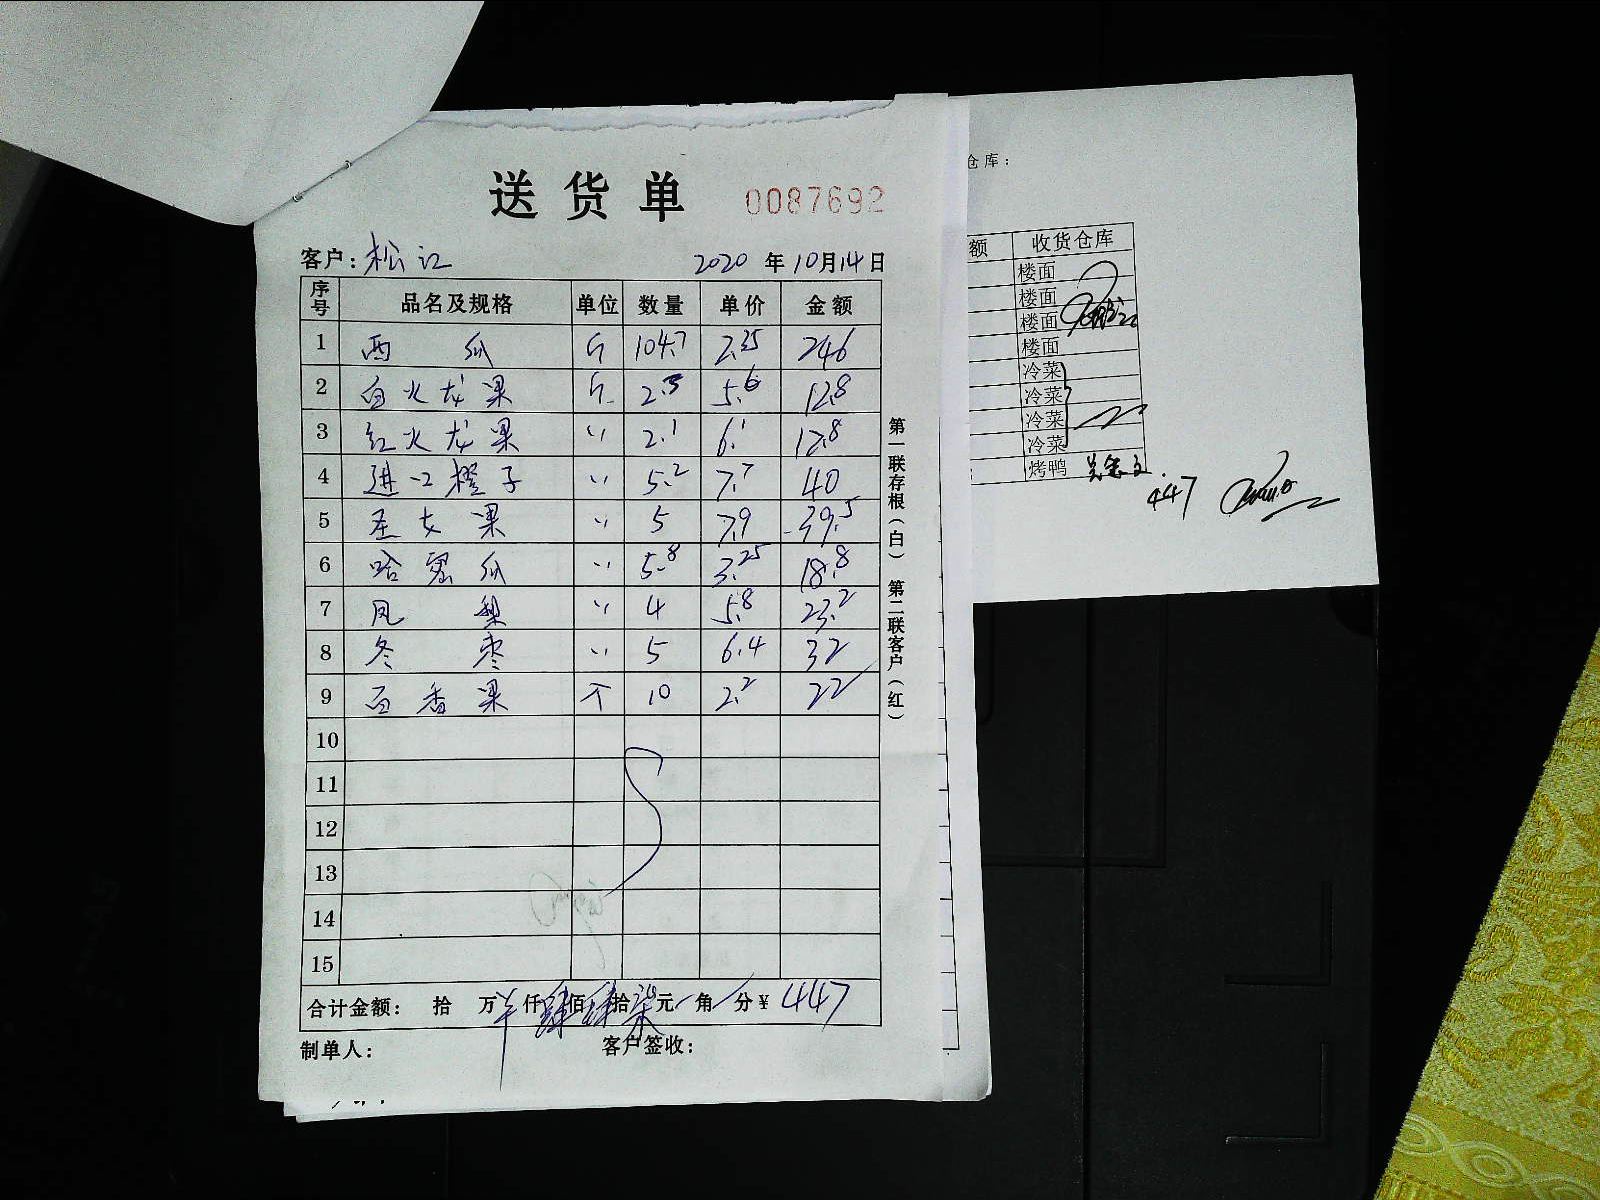 送货单 0087692
客户：松江 2020年10月14日
序号 品名及规格 单位 数量 单价 金额
1 西瓜 斤 104.7 2.35 246
2 白火龙果 斤 2.3 5.6 12.8
3 红火龙果 〃 2.1 6.1 12.8
4 进口橙子 〃 5.2 7.7 40
5 圣女果 〃 5 7.9 39.5
6 哈密瓜 〃 5.8 3.25 18.8
7 凤梨 〃 4 5.8 23.2
8 冬枣 〃 5 6.4 32
9 百香果 个 10 2.2 22
10
11
12
13
14
15
合计金额： 拾 万 仟肆佰肆拾柒元 角 分￥447
制单人： 客户签收：
第一联存根（白） 第二联客户（红）
仓库：
额 收货仓库
楼面
楼面
楼面
楼面
冷菜
冷菜
冷菜
冷菜
烤鸭
447